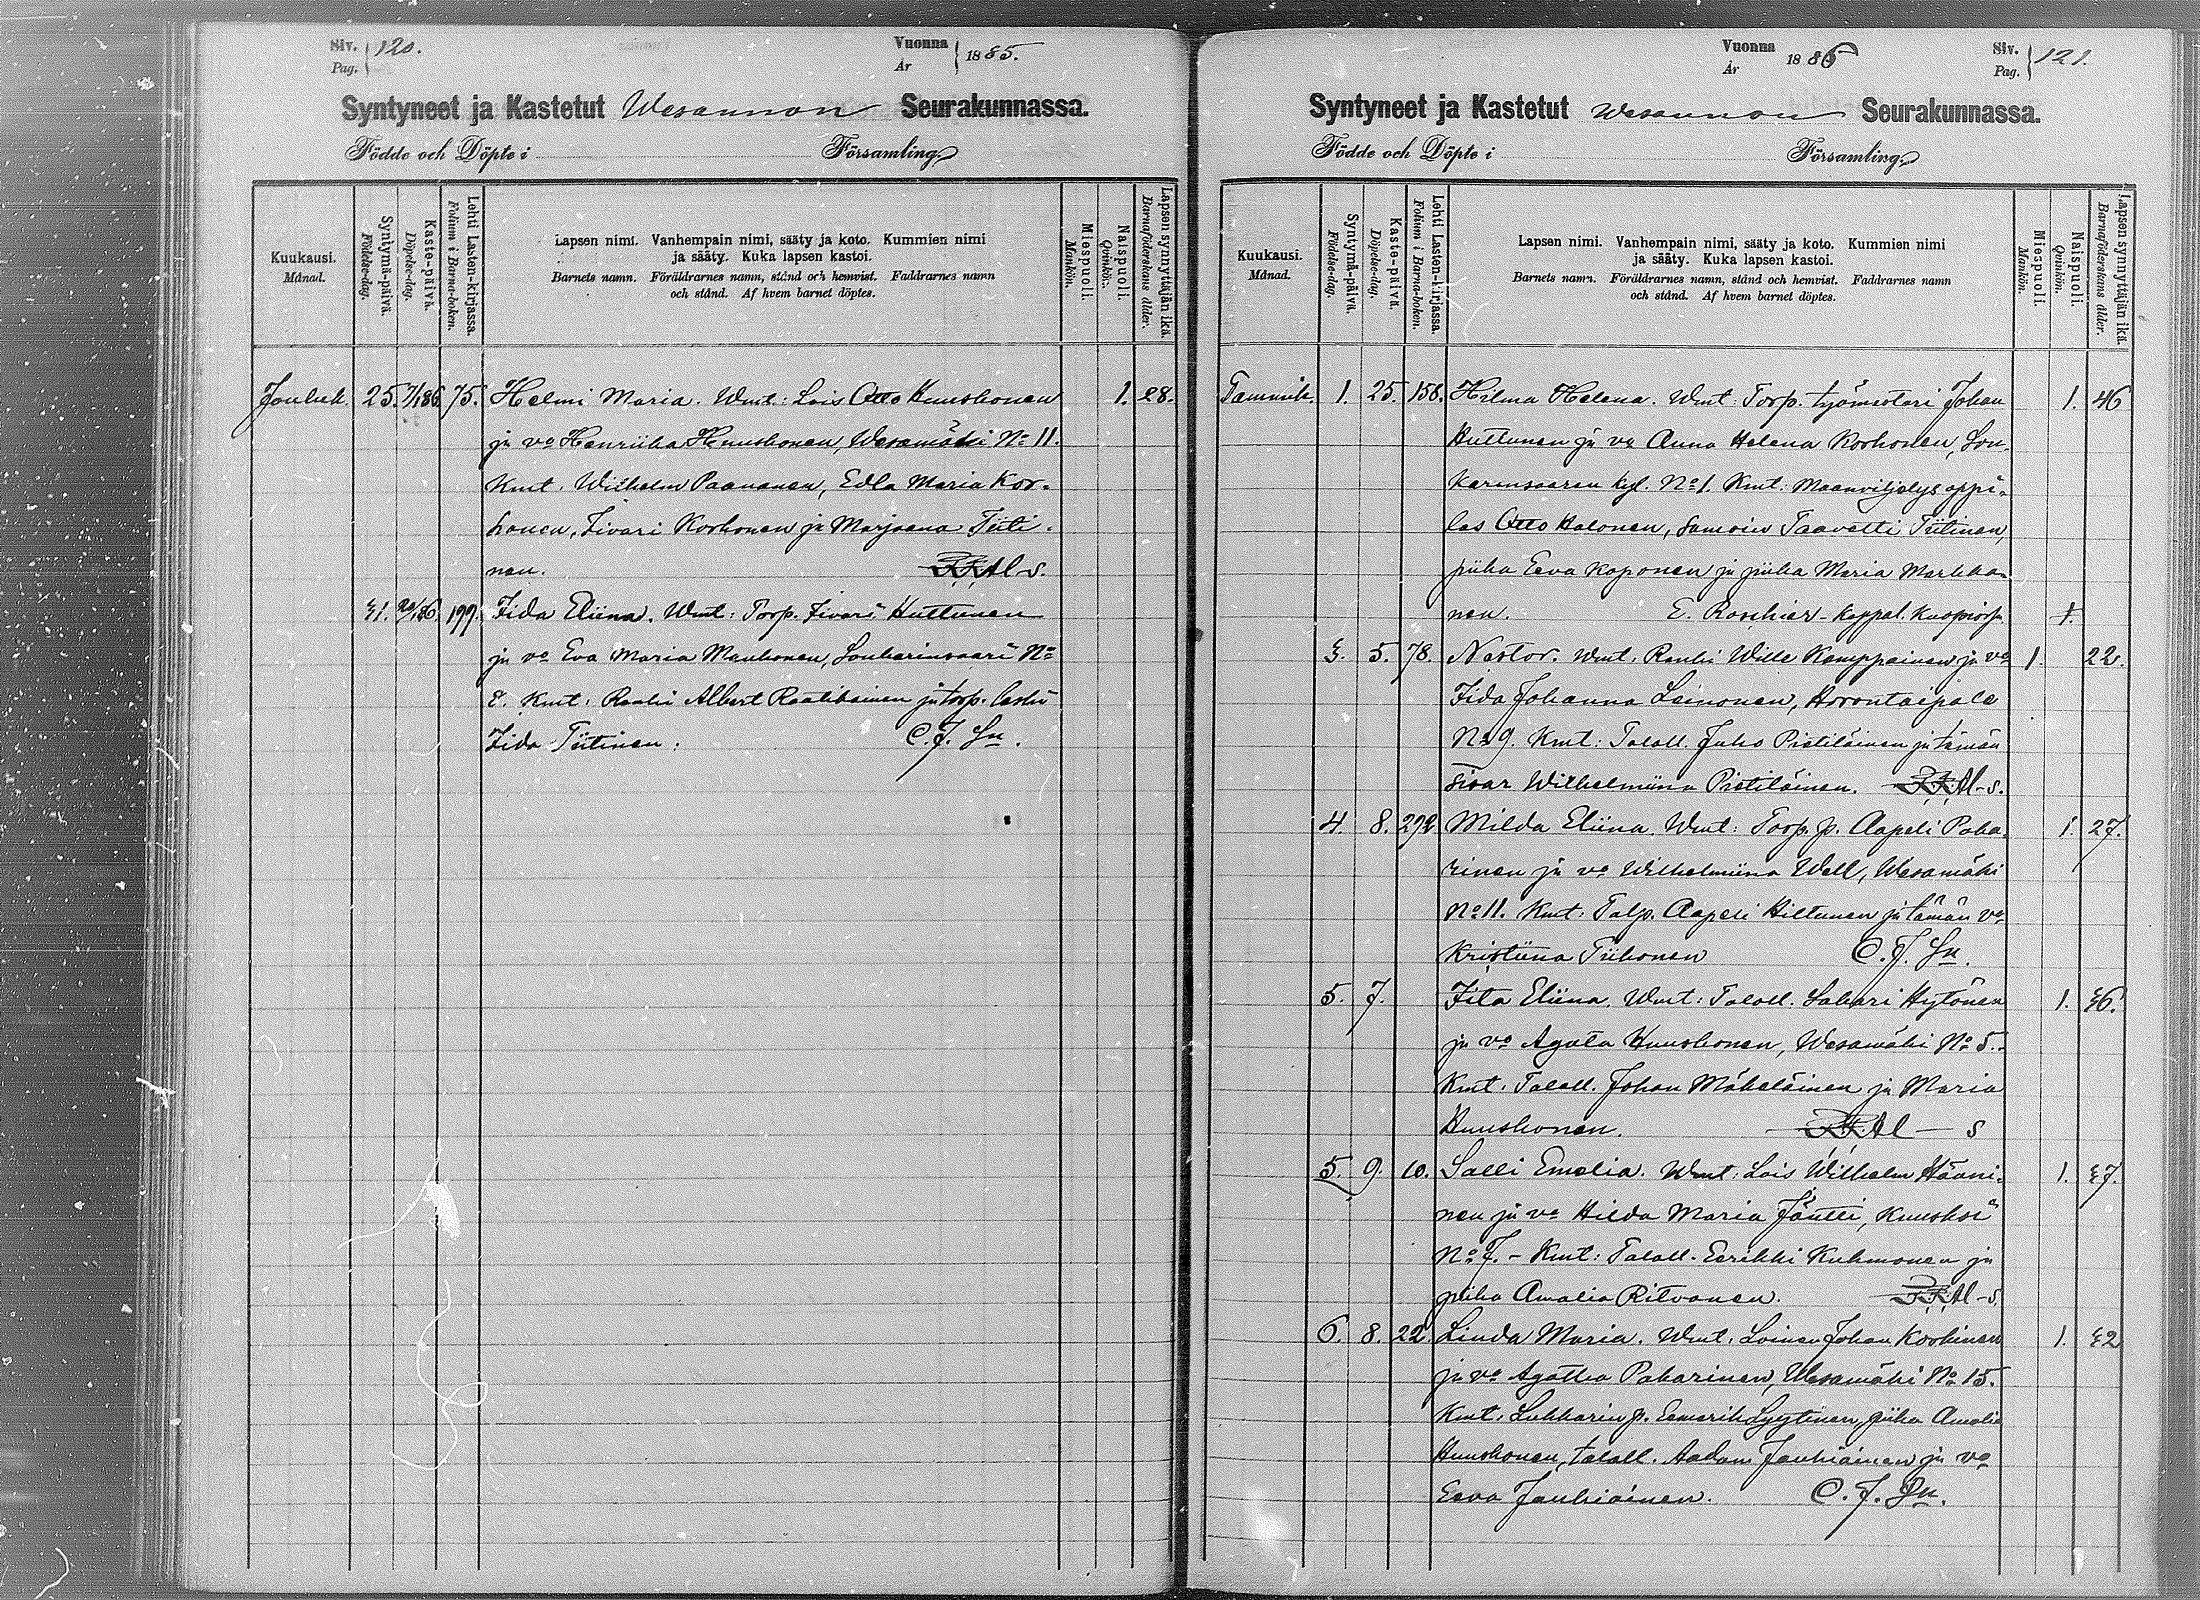 Siv. 120.
Pag.
Vuonna 1885.
År
Syntyneet ja Kastetut Wesannon Seurakunnassa.
Födde och Döpte i Församling.
Kuukausi.
Månad.
Syntymä-päivä.
Födelse-dag.
Kaste-päivä.
Döpelse-dag.
Lehti Lasten-kirjassa.
Folium i Barna-boken.
Lapsen nimi. Vanhempain nimi, sääty ja koto. Kummien nimi
ja sääty. Kuka lapsen kastoi.
Barnets namn. Föräldrarnes namn, stånd och hemvist. Faddrarnes namn
och stånd. Af hvem barnet döptes.
Miespuoli.
Mankön.
Naispuoli.
Qvinkön.
Lapsen synnyttäjän ikä.
Barnaföderskans ålder.
Jouluk. 25. 7/1 86. 75. Helmi Maria. Wmt: Lois Otto Huuskonen 1. 28.
ja vo Henriika Huuskonen, Wesamäki No 11.
Kmt. Wilhelm Paananen, Edla Maria Kor-
honen, Iivari Korhonen ja Marjaana Tiiti-
nen. Al-s.
31. 20/1 86. 199. Iida Eliina. Wmt: Torp. Iivari Huttunen
ja vo Eva Maria Manhonen, Soukarinsaari No
8. Kmt: Renki Albert Raatikainen ja torp. leski
Iida Tiitinen. C. J. Sn.
Vuonna 1886
År
Siv. 121.
Pag.
Syntyneet ja Kastetut Wesannon Seurakunnassa.
Födde och Döpte i Församling.
Kuukausi.
Månad.
Syntymä-päivä.
Födelse-dag.
Kaste-päivä.
Döpelse-dag.
Lehti Lasten-kirjassa.
Folium i Barna-boken.
Lapsen nimi. Vanhempain nimi, sääty ja koto. Kummien nimi
ja sääty. Kuka lapsen kastoi.
Barnets namn. Föräldrarnes namn, stånd och hemvist. Faddrarnes namn
och stånd. Af hvem barnet döptes.
Miespuoli.
Mankön.
Naispuoli.
Qvinkön.
Lapsen synnyttäjän ikä.
Barnaföderskans ålder.
Tammik. 1. 25. 158. Hilma Helena. Wmt: Torp. työmestari Johan 1. 46
Huttunen ja vo Anna Helena Korhonen, Sou-
karinsaaren kyl. No 1. Kmt: Maanviljelysoppi-
las Otto Halonen, Samoin Taavetti Tiitinen,
piika Eeva Koponen ja piika Maria Markka-
nen. E. Roschier - Kappal. Kuopiossa
3. 5. 78. Nestor. Wmt: Renki Wille Kamppainen ja vo 1. 22.
Iida Johanna Leinonen, Horontaipale
No 9. Kmt: Taloll. Juho Pietiläinen ja tämän
sisar Wilhelmiina Pietiläinen. Al-s.
4. 8. 292 Milda Eliina. Wmt: Torp. p. Aapeli Paka- 1. 27.
rinen ja vo Wilhelmiina Well, Wesamäki
No 11. Kmt: Talp. Aapeli Hiltunen ja tämän vo
Kristiina Tiihonen C. J. Sn.
5. 7. Iita Eliina. Wmt: Taloll. Sakari Hytönen 1. 36.
ja vo Agata Huuskonen, Wesamäki No 5.
Kmt: Taloll. Johan Mäkeläinen ja Maria
Huuskonen. Al - s
5. 9. 10. Salli Emelia. Wmt: Lois Wilhelm Häāni- 1. 37.
nen ja vo Hilda Maria Jäntti, Kuuskoi
No 7. - Kmt: Taloll. Eerikki Kuhmonen ja
piika Amalia Ritvanen. Al-s.
6. 8. 22. Linda Maria. Wmt: Loinen Johan Koskinen 1. 32
ja vo Agatha Pakarinen, Wesamäki No 15.
Kmt: Lukkarin p. Eemerik Lyytinen, piika Amalia
Huuskonen, taloll. Aadam Jauhiainen ja vo
Eeva Jauhiainen. C. J. Sn.